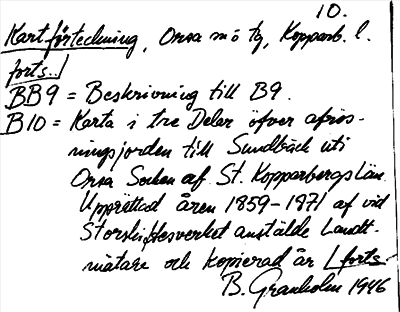 10.
Kartförteckning, Orsa m ö tg, Kopparb. l.
forts..
BB9 = Beskrivning till B9.
B10 = Karta i tre Delar öfver afrös-
ningsjorden till Sundbäck uti
Orsa Socken af St. Kopparbergs Län.
Upprättad åren 1859-1871 af vid
Storskiftesverket anstälde Landt-
mätare och kopierad år forts
B. Granholm 1946